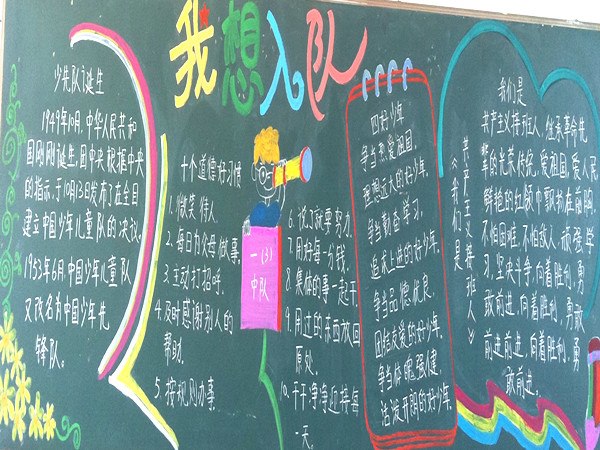 我想入队
少先队诞生
1949年10月,中华人民共和
国刚刚诞生,团中央根据中央
的指示,于10月13日发布了在全国
建立中国少年儿童队的决议。
1953年6月,中国少年儿童队
又改名为中国少年先
锋队。
十个道德好习惯
1.微笑待人.
2.每日为父母做事.
3.主动打招呼.
4.及时感谢别人的
帮助.
5.按规则办事.
一(3)
中队
6.说了就要努力.
7.用好每一分钱.
8.集体的事一起干.
9.用过的东西放回
原处.
10.干干净净迎接每
一天.
四好少年
争当热爱祖国,
理想远大的好少年.
争当勤奋学习,
追求上进的好少年.
争当品德优良,
团结友爱的好少年.
争当体魄强健,
活泼开朗的好少年.
《我们是共产主义接班人》
我们是
共产主义接班人,继承革命先
辈的光荣传统,爱祖国,爱人民,
鲜艳的红领巾飘扬在前胸,
不怕困难,不怕敌人,顽强学
习,坚决斗争,向着胜利,勇
敢前进,向着胜利,勇敢
前进前进,向着胜利,勇
敢前进。